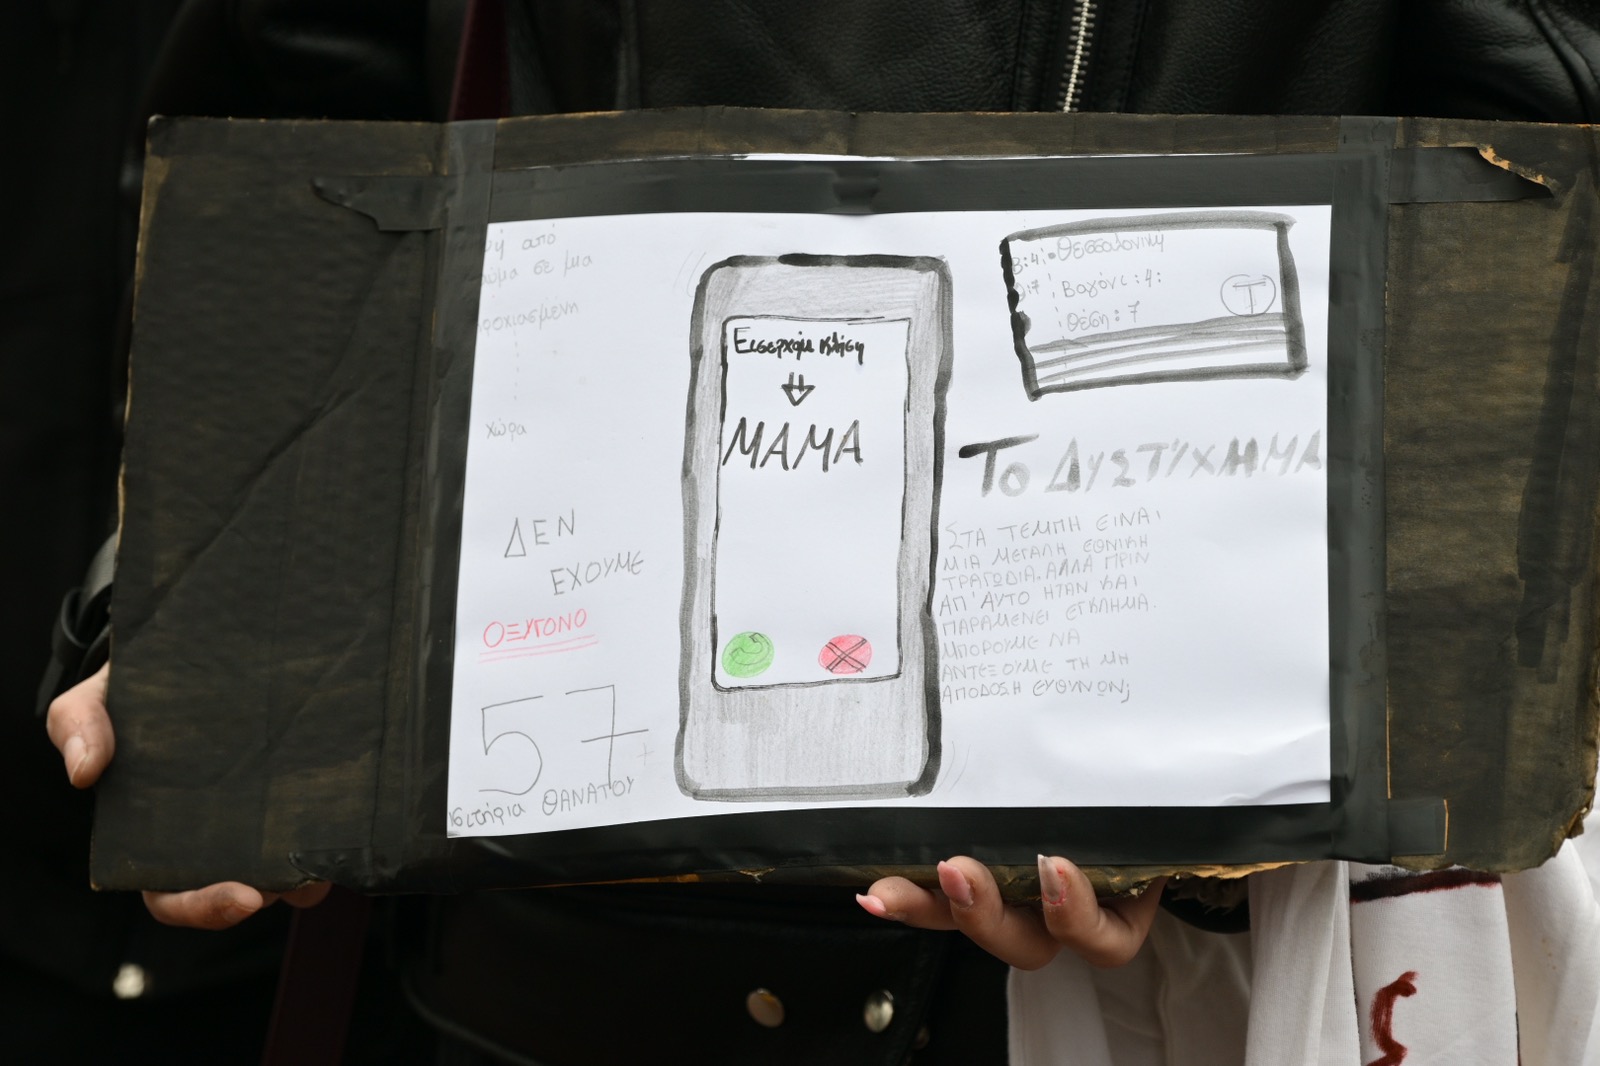 από
σε μια
χώρα
ΔΕΝ
ΕΧΟΥΜΕ
ΟΞΥΓΟΝΟ
57
ΘΑΝΑΤΟΥ
Εισερχόμ κλήση
ΜΑΜΑ
Θεσσαλονίκη
Βαγόνι: 4:
Θέση: 7
Τ
ΤΟ ΔΥΣΤΎΧΗΜΑ
ΣΤΑ ΤΕΜΠΗ ΕΙΝΑΙ
ΜΙΑ ΜΕΓΑΛΗ ΕΘΝΙΚΗ
ΤΡΑΓΩΔΙΑ. ΑΛΛΑ ΠΡΙΝ
ΑΠ' ΑΥΤΟ ΗΤΑΝ ΚΑΙ
ΠΑΡΑΜΕΝΕΙ ΕΓΚΛΗΜΑ.
ΜΠΟΡΟΥΜΕ ΝΑ
ΑΝΤΕΞΟΥΜΕ ΤΗ ΜΗ
ΑΠΟΔΟΣΗ ΕΥΘΥΝΩΝ;